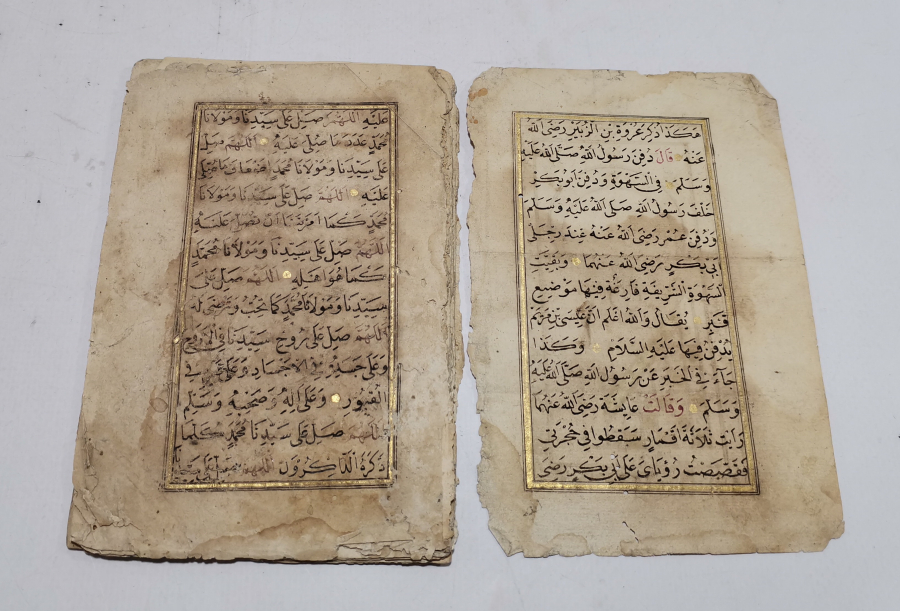 هكذا ذكر عروة بن الزبير رضى الله
عنه قال دفن رسول الله صلى الله عليه
وسلم في السهوة ودفن ابو بكر
خلف رسول الله صلى الله عليه وسلم
ودفن عمر رضى الله عنه عند رجلي
ابي بكر رضى الله عنهما وبقيت
السهوة الشريفة فارغة فيها موضع
قبر يقال والله اعلم ان عيسى بن مريم
يدفن فيها عليه السلام وكذا
جاء في الخبر عن رسول الله صلى الله عليه
وسلم وقالت عايشة رضى الله عنها
رايت ثلاثة اقمار سقطوا في حجرتي
فقصصت رؤياي على ابي بكر رضى
عليه اللهم صل على سيدنا ومولانا
محمد عدد ما صلي عليه اللهم صل
على سيدنا ومولانا محمد اضعاف ما صلي
عليه اللهم صل على سيدنا ومولانا
محمد كما امرتنا ان نصلي عليه
اللهم صل على سيدنا ومولانا محمد
كما هو اهله اللهم صل على
سيدنا ومولانا محمد كما تحب وترضى له
اللهم صل على روح سيدنا في الاروح
وعلى جسده في الاجساد وعلى قبره في
القبور وعلى اله وصحبه وسلم
اللهم صل على سيدنا محمد كلما
ذكره الذاكرون اللهم صل على